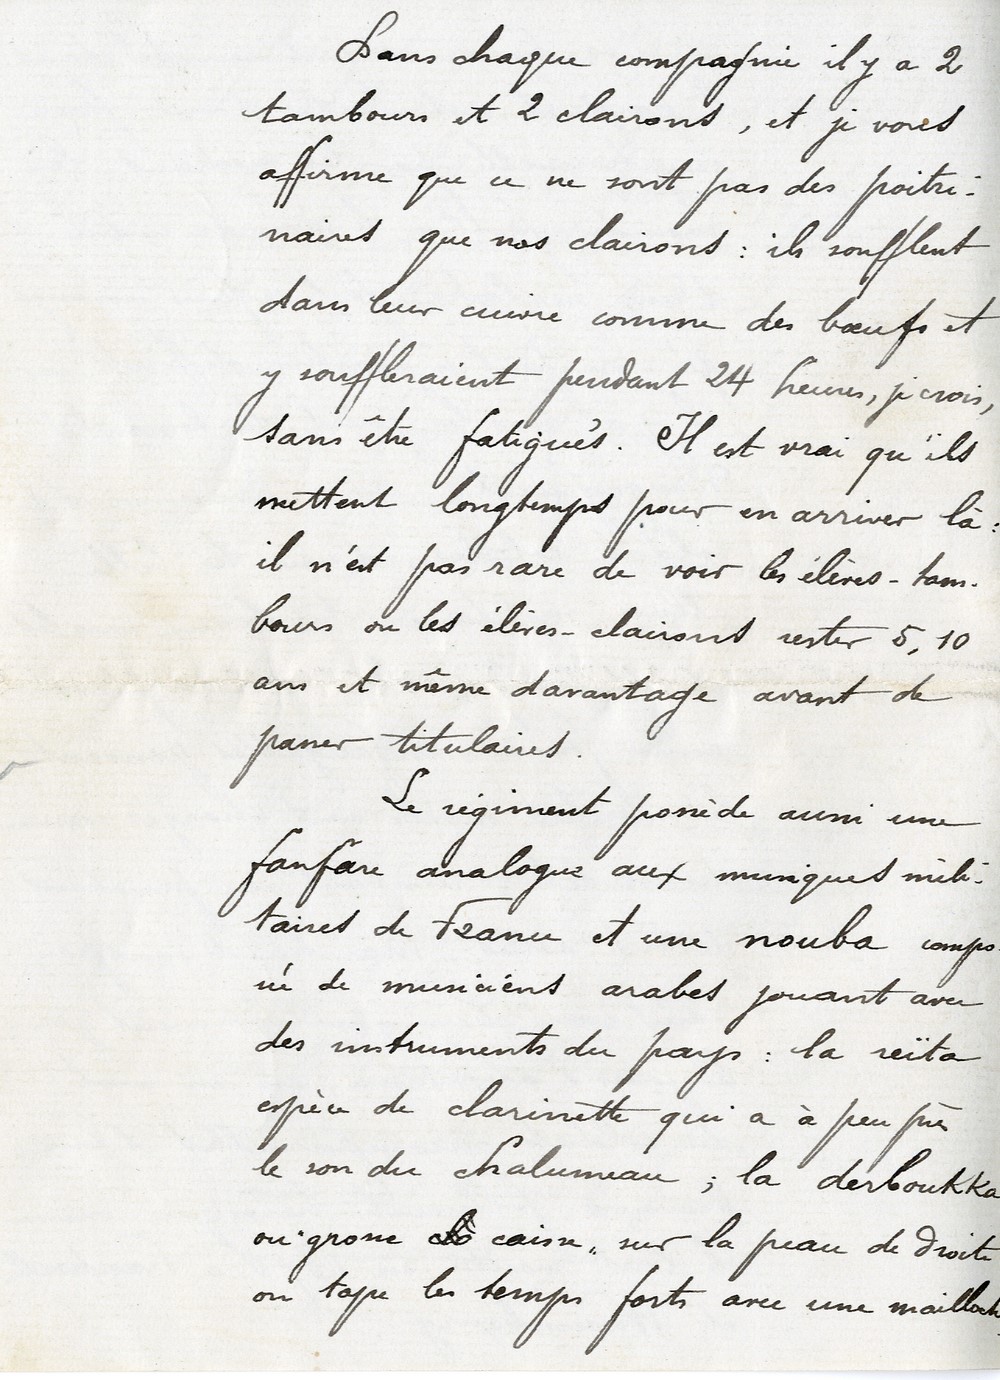 Dans chaque compagnie il y a 2
tambours et 2 clairons, et je vous
affirme que ce ne sont pas des poitri-
naires que nos clairons : ils soufflent
dans leur cuivre comme des bœufs et
y souffleraient pendant 24 heures, je crois,
sans être fatigués. Il est vrai qu'ils
mettent longtemps pour en arriver là :
il n'est pas rare de voir les élèves-tam-
bours ou les élèves-clairons rester 5, 10
ans et même davantage avant de
passer titulaires.
Le régiment possède aussi une
fanfare analogue aux musiques mili-
taires de France et une nouba compo-
sée de musiciens arabes jouant avec
des instruments du pays : la reïta
espèce de clarinette qui a à peu près
le son du chalumeau ; la derboukka
ou "grosse caisse" sur la peau de droite
on tape les temps forts avec une mailloche